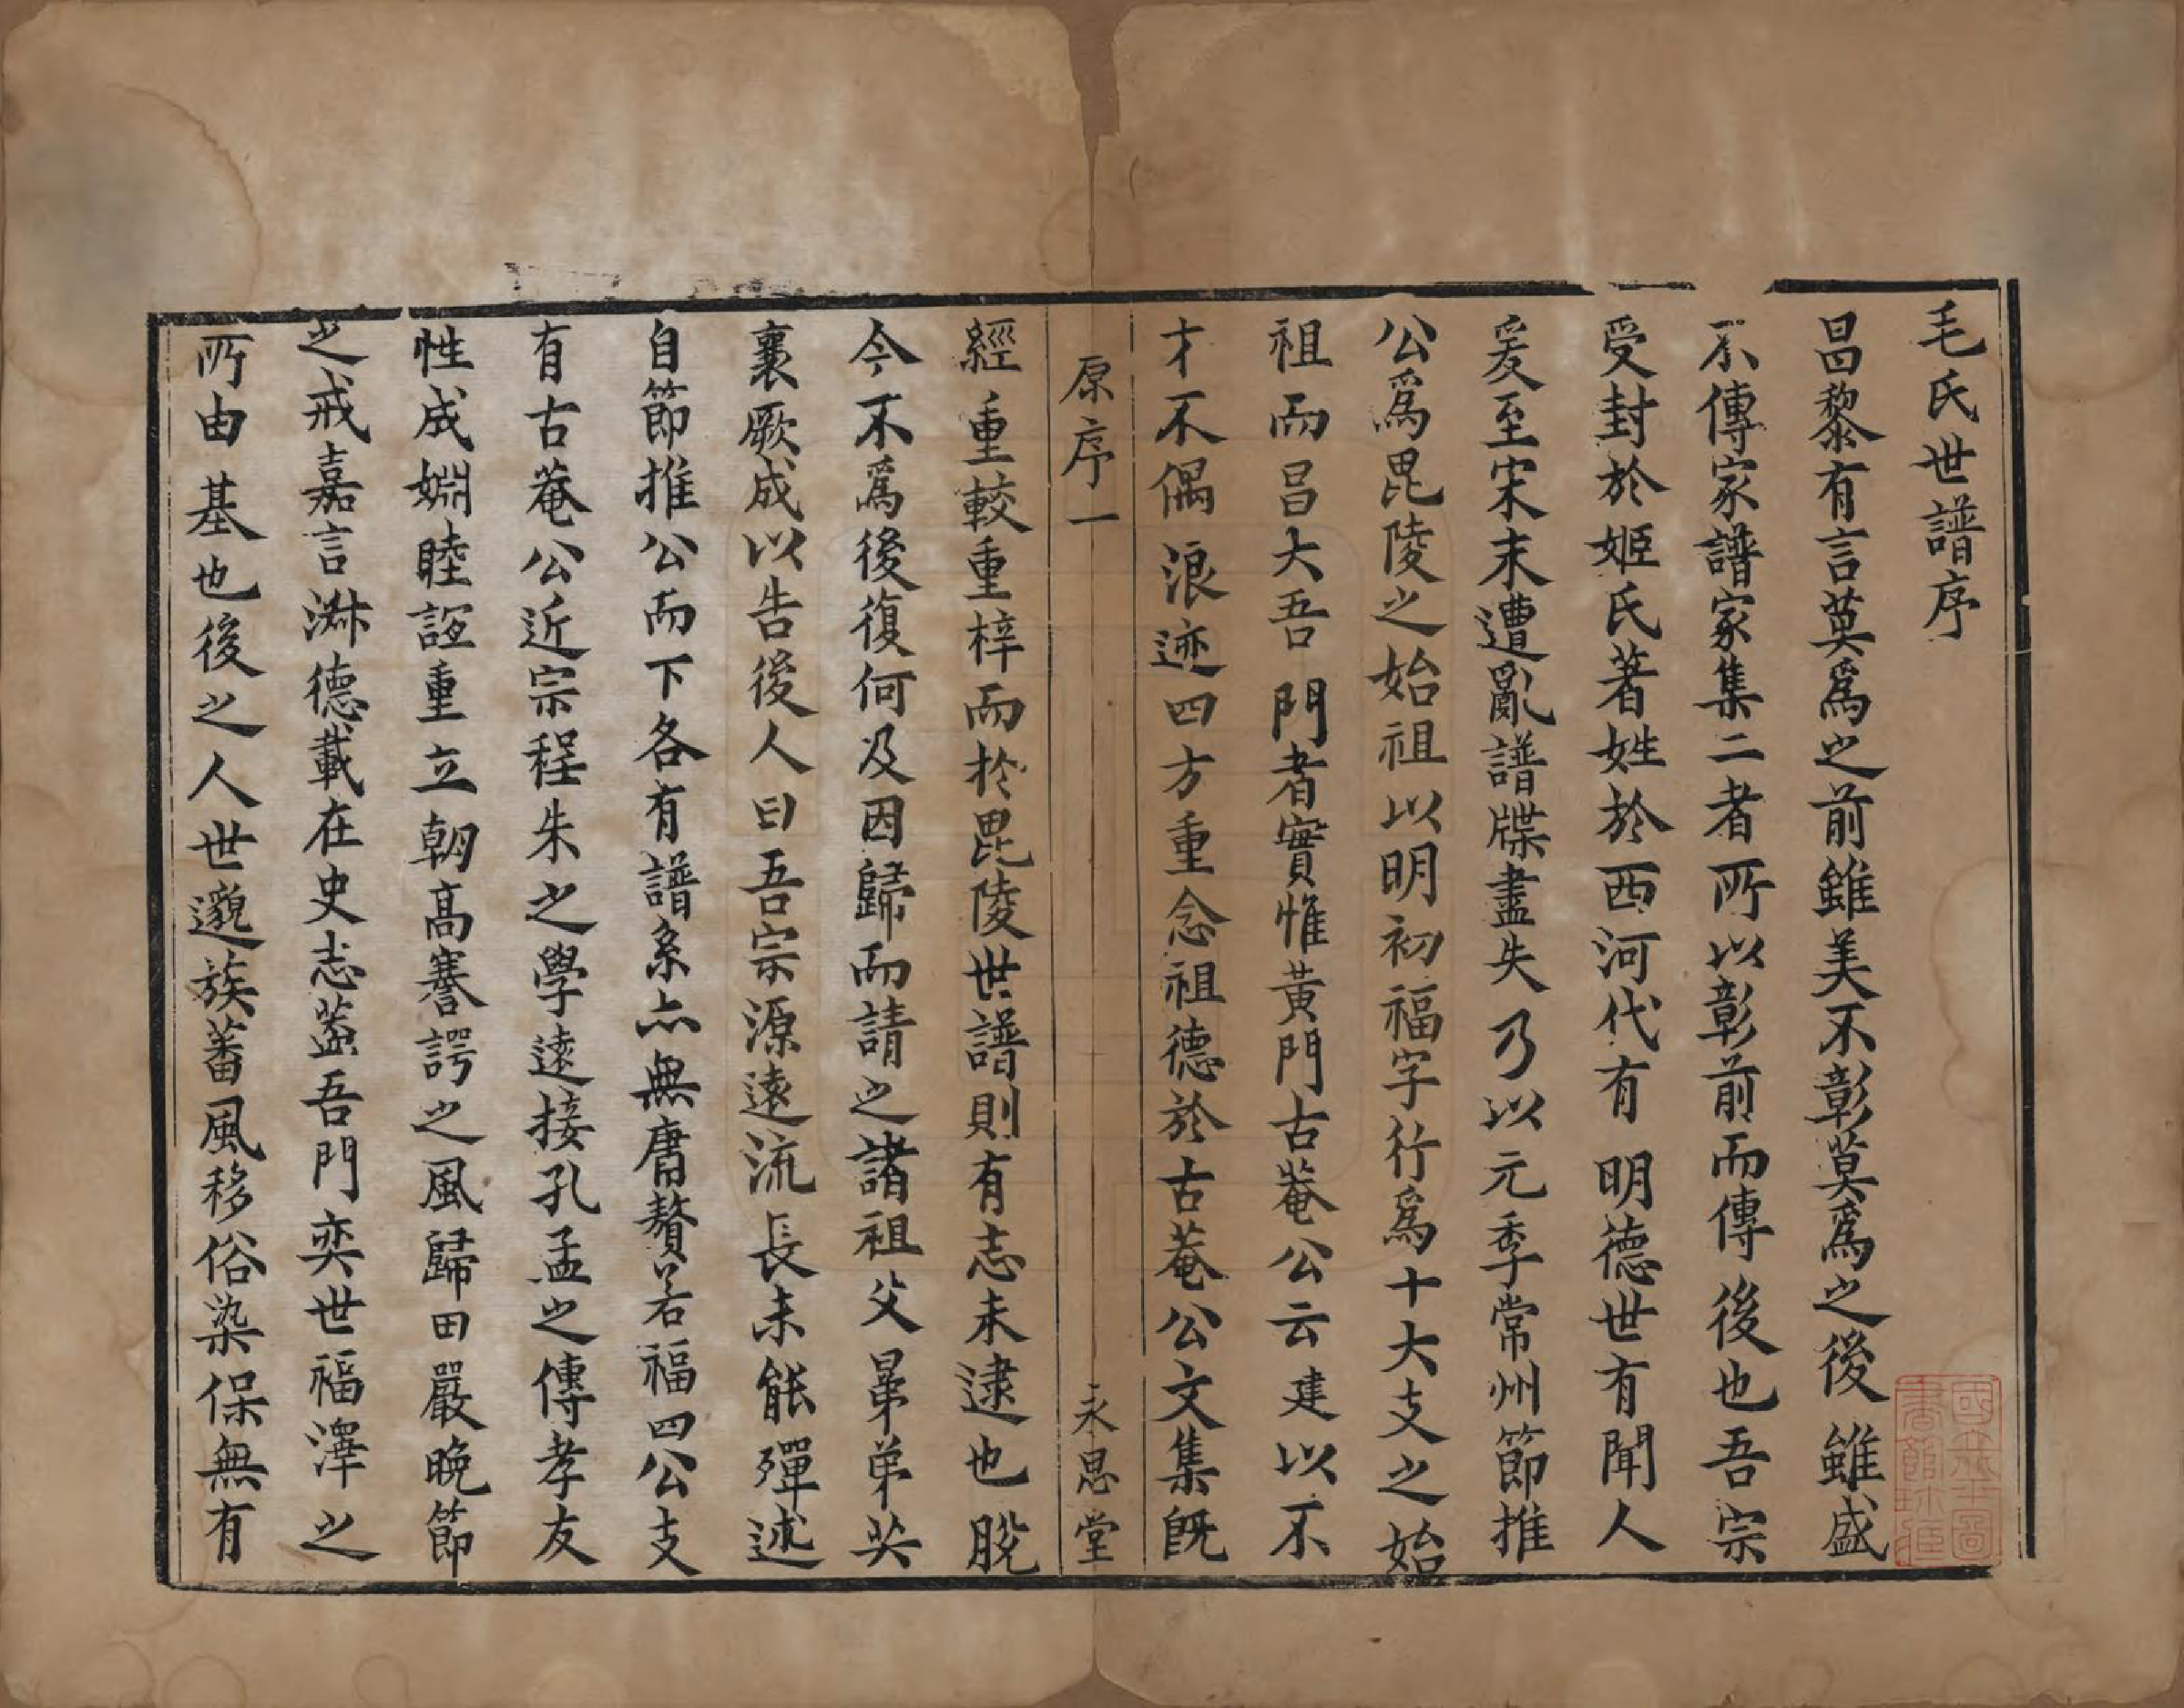 毛氏世譜序
昌黎有言莫爲之前雖美不彰莫爲之後雖盛
不傳家譜家集二者所以彰前而傳後也吾宗
受封於姬氏著姓於西河代有明德世有聞人
爰至宋末遭亂譜牒盡失乃以元季常州節推
公爲毘陵之始祖以明初福字行爲十大支之始
祖而昌大吾門者實惟黃門古菴公云建以不
才不偶浪迹四方重念祖德於古菴公文集旣
原序一
永思堂
經重較重梓而於毘陵世譜則有志未逮也脫
今不爲後復何及因歸而請之諸祖父晜弟共
襄厥成以告後人曰吾宗源遠流長未能殫述
自節推公而下各有譜系亦無庸贅若福四公支
有古菴公近宗程朱之學遠接孔孟之傳孝友
性成婣睦誼重立朝高謇諤之風歸田嚴晚節
之戒嘉言淋德載在史志葢吾門奕世福澤之
所由基也後之人世邈族蕃風移俗染保無有
國立北平圖
書館珍藏